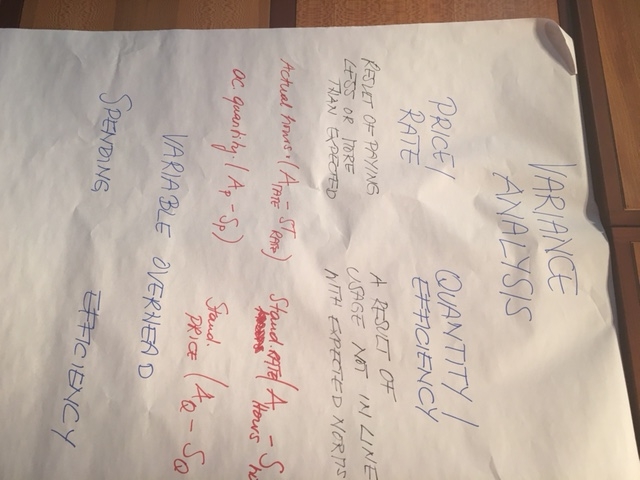 VARIANCE
ANALYSIS
PRICE/
RATE
RESULT OF PAYING
LESS OR MORE
THAN EXPECTED
Actual hours (A RATE - ST RATE)
ac. quantity (Ap - Sp)
QUANTITY/
EFFICIENCY
A RESULT OF
USAGE NOT IN LINE
WITH EXPECTED NORMS
Stand. RATE (A Hours - S
Stand.
PRICE (AQ - SQ
VARIABLE OVERHEAD
SPENDING
EFFICIENCY